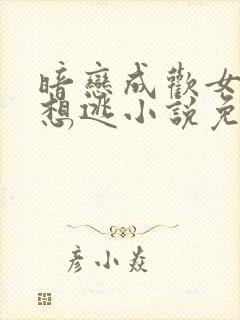 暗戀成歡女
想逃小說免
彥小焱